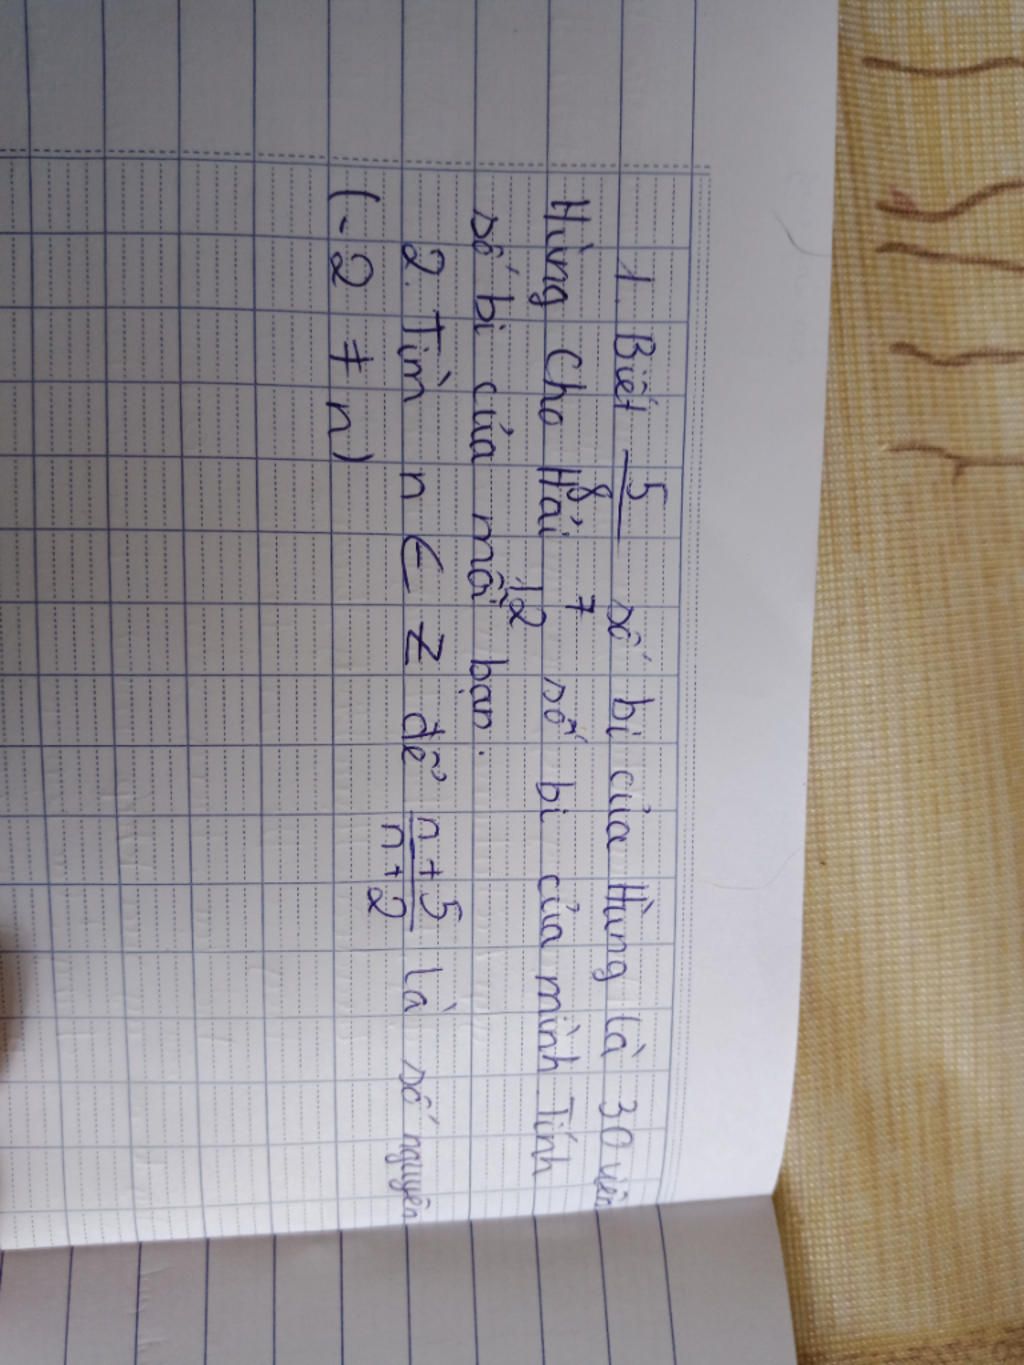 1. Biết 5/8 số bi của Hùng là 30 viên
Hùng Cho Hải 7/12 số bi của mình Tính
số bi của mỗi bạn.
2. Tìm n ∈ Z để n+5/n+2 là số nguyên
(-2 ≠ n)